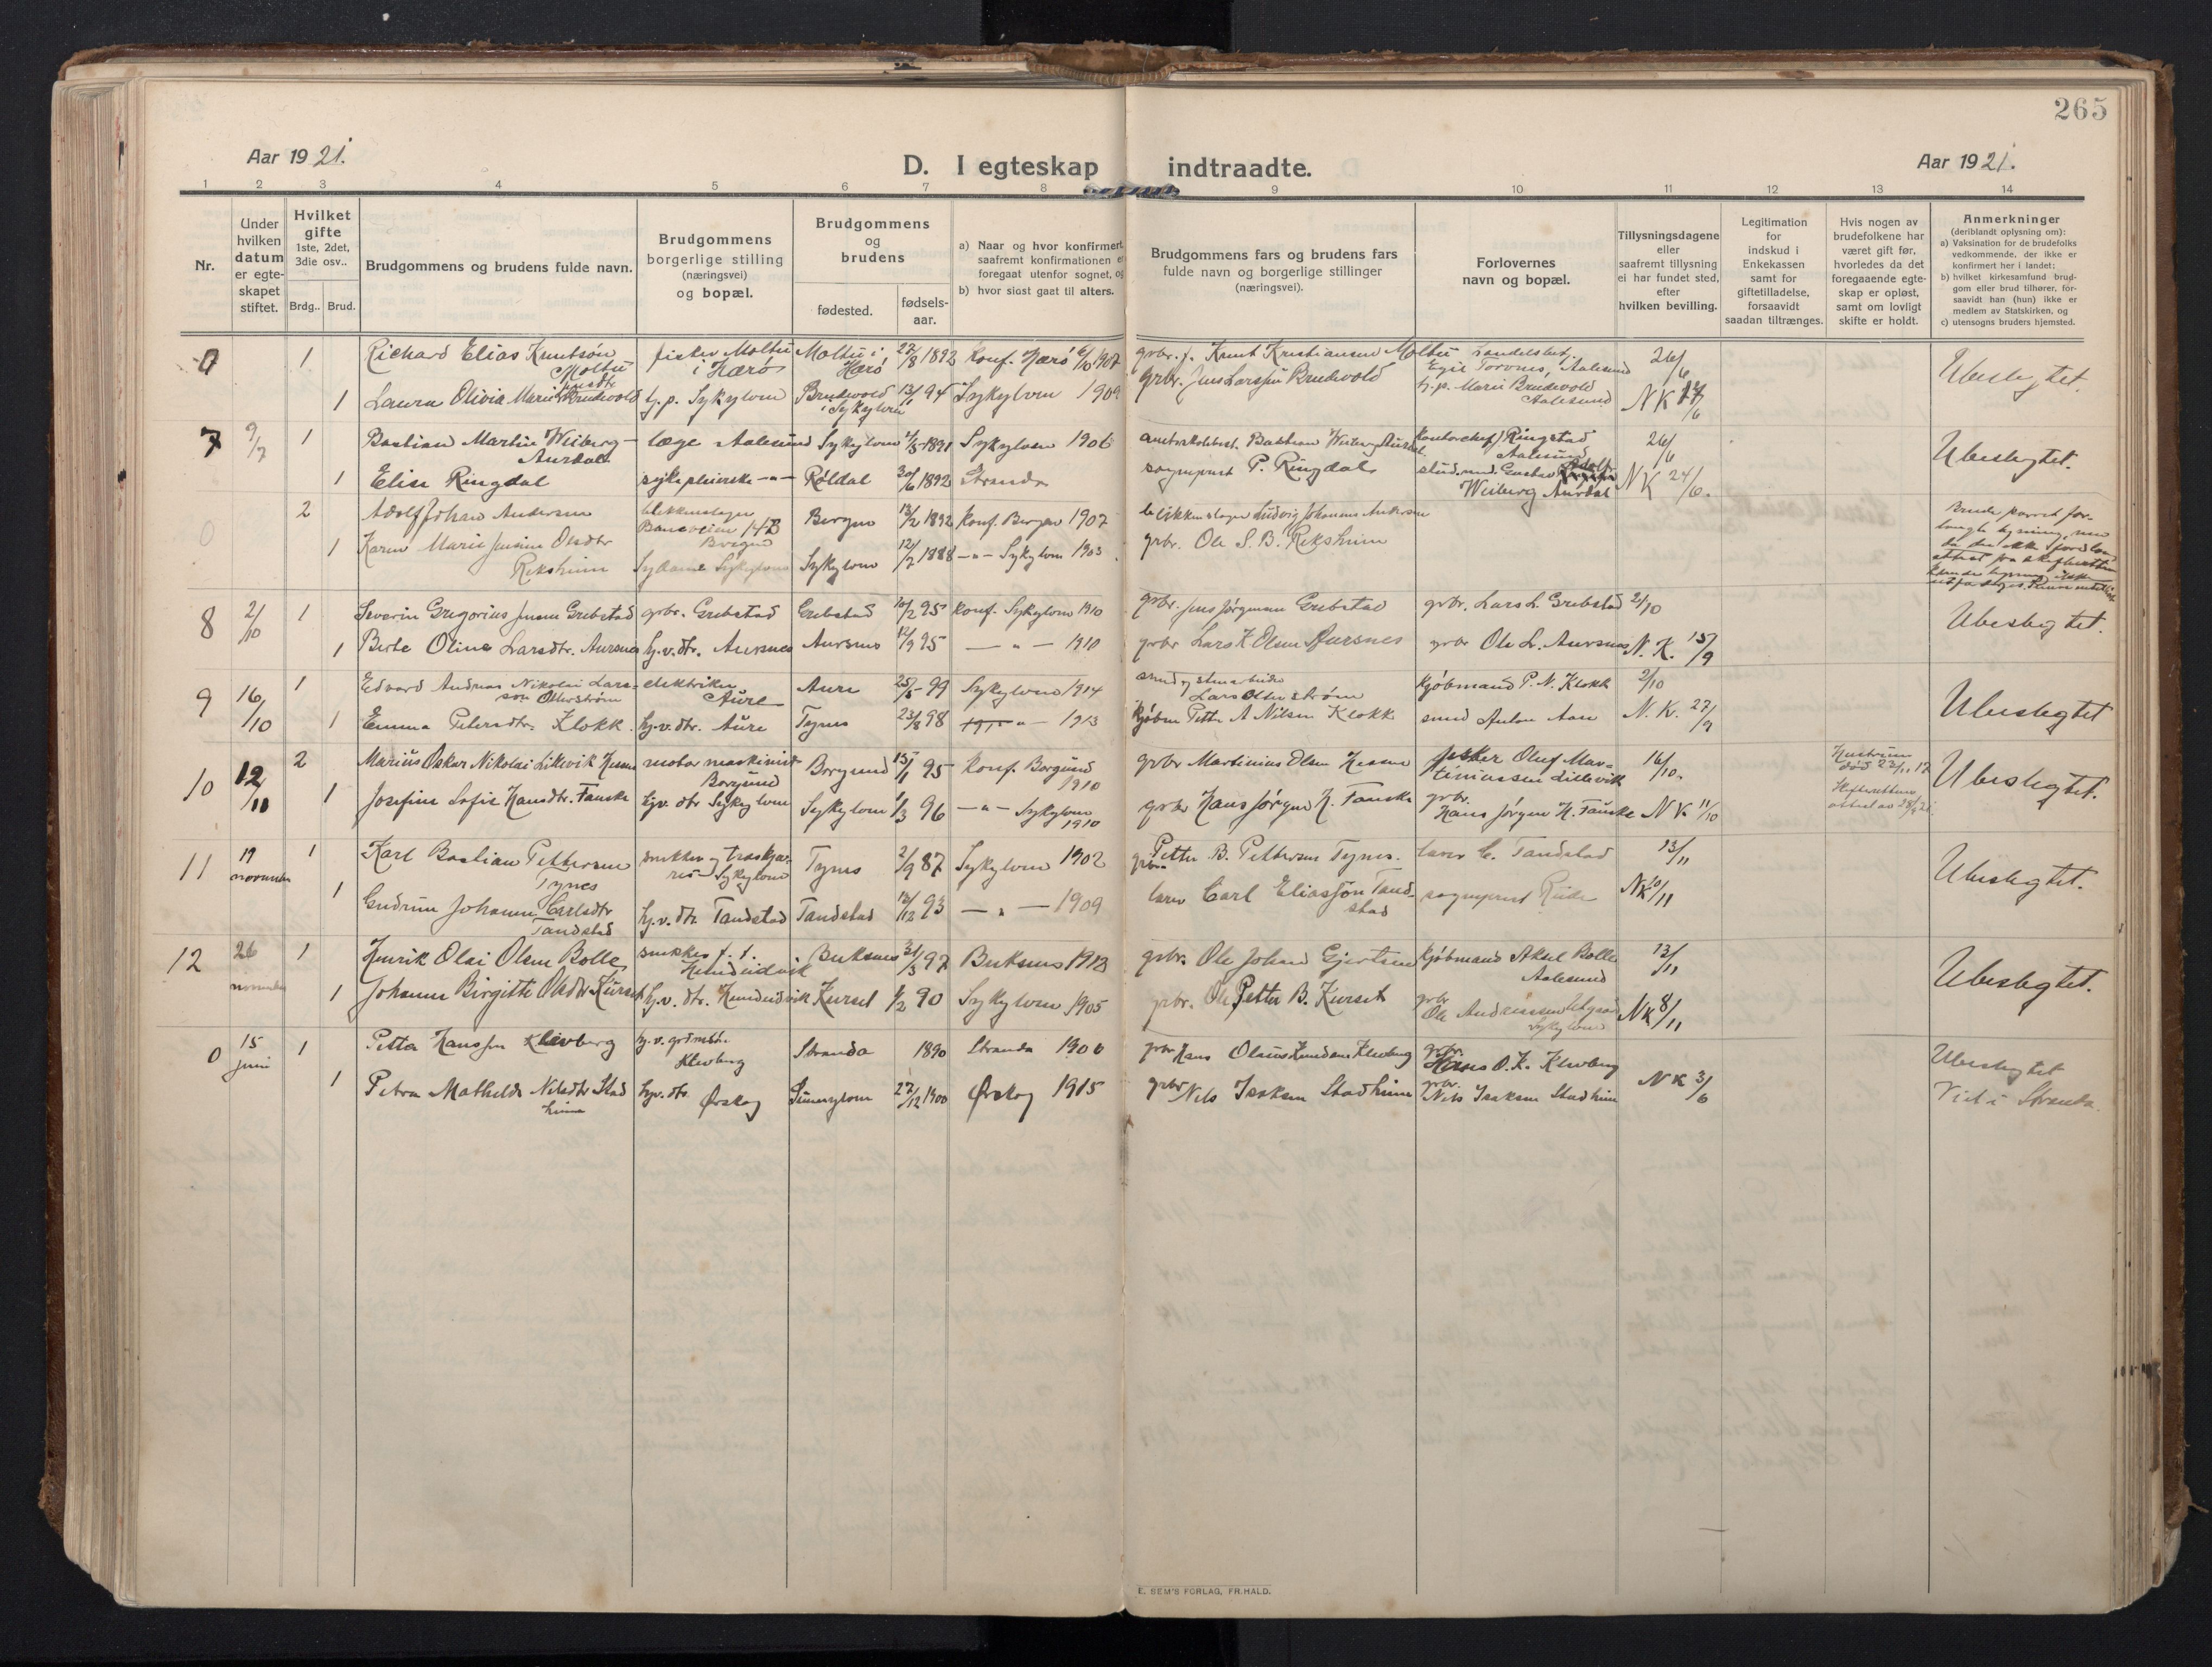 265
Aar 1921.
D. I egteskap indtraadte.
Aar 1921.
1 2 3 4 5 6 7 8 9 10 11 12 13 14
Nr.
Under hvilken datum er egteskapet stiftet.
Hvilket gifte 1ste, 2det, 3die osv..
Brdg.. Brud.
Brudgommens og brudens fulde navn.
Brudgommens borgerlige stilling (næringsvei) og bopæl.
Brudgommens og brudens
fødested. fødsels-aar.
a) Naar og hvor konfirmert, saafremt konfirmationen er foregaat utenfor sognet, og
b) hvor sidst gaat til alters.
Brudgommens fars og brudens fars fulde navn og borgerlige stillinger (næringsvei).
Forlovernes navn og bopæl.
Tillysningsdagene eller saafremt tillysning ei har fundet sted, efter hvilken bevilling.
Legitimation for indskud i Enkekassen samt for giftetilladelse, forsaavidt saadan tiltrænges.
Hvis nogen av brudefolkene har været gift før, hvorledes da det foregaaende egteskap er opløst, samt om lovligt skifte er holdt.
Anmerkninger (deriblandt oplysning om):
a) Vaksination for de brudefolks vedkommende, der ikke er konfirmert her i landet;
b) hvilket kirkesamfund brudgom eller brud tilhører, forsaavidt han (hun) ikke er medlem av Statskirken, og
c) utensogns bruders hjemsted.
0 1 Richard Elias Knutsøn Moltu fisker Moltu i Hærø Moltu i Hærø 27/8 1892 Konf. Hærø 6/10 1907 grbr. f. Knut Kristiansen Moltu Egil Torvnes, Aalesund 26/6 Ubeslegtet.
1 Laura Olivia Marie Jensdtr Brudevold t.p. Sykylven Brudevold i Sykylven 13/1 94 Sykylven 1909 grbr. Jens Larssen Brudevold t.p. Marie Brudevold Aalesund NK
7 9/7 1 Bastian Martin Weiberg-Aurdal læge Aalesund Sykylven 1891 Sykylven 1906 Bastian Weiberg Aurdal kontorchef Ringstad Aalesund 26/6 Ubeslegtet.
1 Elise Ringdal sykepleierske -"- Røldal 30/6 1892 Stranda sogneprest P. Ringdal stud.med. Gustav Adolf Weiberg Aurdal NK 24/6.
0 2 Adolf Johan Andersen blikkenslager 14B Bergen Bergen 13/2 1892 Konf. Bergen 1907 blikkenslager Ludvig Johannes Andersen
1 Karen Marie Jensine Olsdtr Rekshium Sykylven Sykylven 12/2 1888 -"- Sykylven 1903 grbr. Ole S. B. Rekshium
8 2/10 1 Severin Gregorius Jensen Grebstad grbr. Grebstad Grebstad 10/2 95 Konf. Sykylven 1910 grbr. Jens Jørgensen Grebstad grbr. Lars L. Grebstad 2/10 Ubeslegtet.
1 Berte Oline Larsdtr. Aursnes hj.v.dtr. Aursnes Aursnes 12/9 95 - " - 1910 grbr Lars K Olsen Aursnes grbr Ole L. Aursnes N.K. 15/9
9 16/10 1 Edvard Andreas Nikolai Larsson Otterstrøm elektriker Aure Aure 25/5-99 Sykylven 1914 smed og stenarbeider Lars Otterstrøm kjøbmand P. N. Klokk 2/10 Ubeslegtet
1 Emma Petersdtr. Klokk. hj.v.dtr. Aure Tynes 23/8 98 - " - 1913 kjøbm Petter A Nilsen Klokk smed Anton Aure N.K. 27/9
10 12/11 2 Marius Oskar Nikolai Lillevik Hessen motor maskinist Borgund Borgund 15/1 95 Konf. Borgund 1910 grbr Martinius Olsen Hessen fisker Oluf Martinussen Lillevik 16/10. Hustruen død 23/11 17 Ubeslegtet.
1 Josefine Sofie Hansdtr. Fauske hjv. dtr Sykylven Sykylven 1/3 96 -"- Sykylven 1910 grbr Hans Jørgen H. Fauske grbr. Hans Jørgen H. Fauske NK 11/10
11 19 november 1 Karl Bastian Pettersen Tynes snekker og træskjærer Sykylven Tynes 2/9 87 Sykylven 1902 grbr. Petter B. Pettersen Tynes. lærer C. Tandstad 13/11 Ubeslegtet.
1 Gudrun Johanne Carlsdtr Tandstad hj.v.dtr Tandstad Tandstad 12/12 93 - " - 1909 lærer Carl Eliassøn Tandstad sogneprest Riide NK 10/11
12 26 november 1 Henrik Olai Olsen Bolle snekker f.t. Hundeidvik Buksnes 31/3 97 Buksnes 1913 grbr. Ole Johan Gjertsen kjøbmand Aksel Bolle Aalesund 13/11 Ubeslegtet.
1 Johanne Birgitte Olsdtr Kurset hj.v. dtr. Hundeidvik Kurset 1/2 90 Sykylven 1905 grbr. Ole Petter B. Kurset grbr Ole Andreassen Sykylven NK 8/11
0 15 juni 1 Petter Hanssen Klevberg hj.v. grdmdtr. Klevberg Stranda 1890 Stranda 1906 grbr Hans Olaus Knudsen Klevberg grbr. Hans O. K. Klevberg Ubeslegtet
1 Petra Mathilde Nilsdtr Stadheim hjv. dtr Ørskog Sunnylven 27/12 1900 Ørskog 1915 grbr Nils Isaksen Stadheim grbr. Nils Isaksen Stadheim NK 3/6 Viet i Stranda.
E. SEM'S FORLAG, FR.HALD.